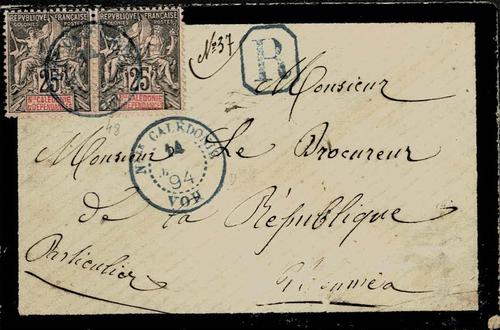 RÉPUBLIQUE FRANÇAISE RÉPUBLIQUE FRANÇAISE
COLONIES POSTES COLONIES POSTES
25 25
Nlle CALÉDONIE Nlle CALÉDONIE
ET DÉPENDANCES ET DÉPENDANCES
No 37
R
48
Monsieur
Nlle CALEDONIE
94
VOH
Monsieur Le Procureur
de la République
Particulier
Nouméa